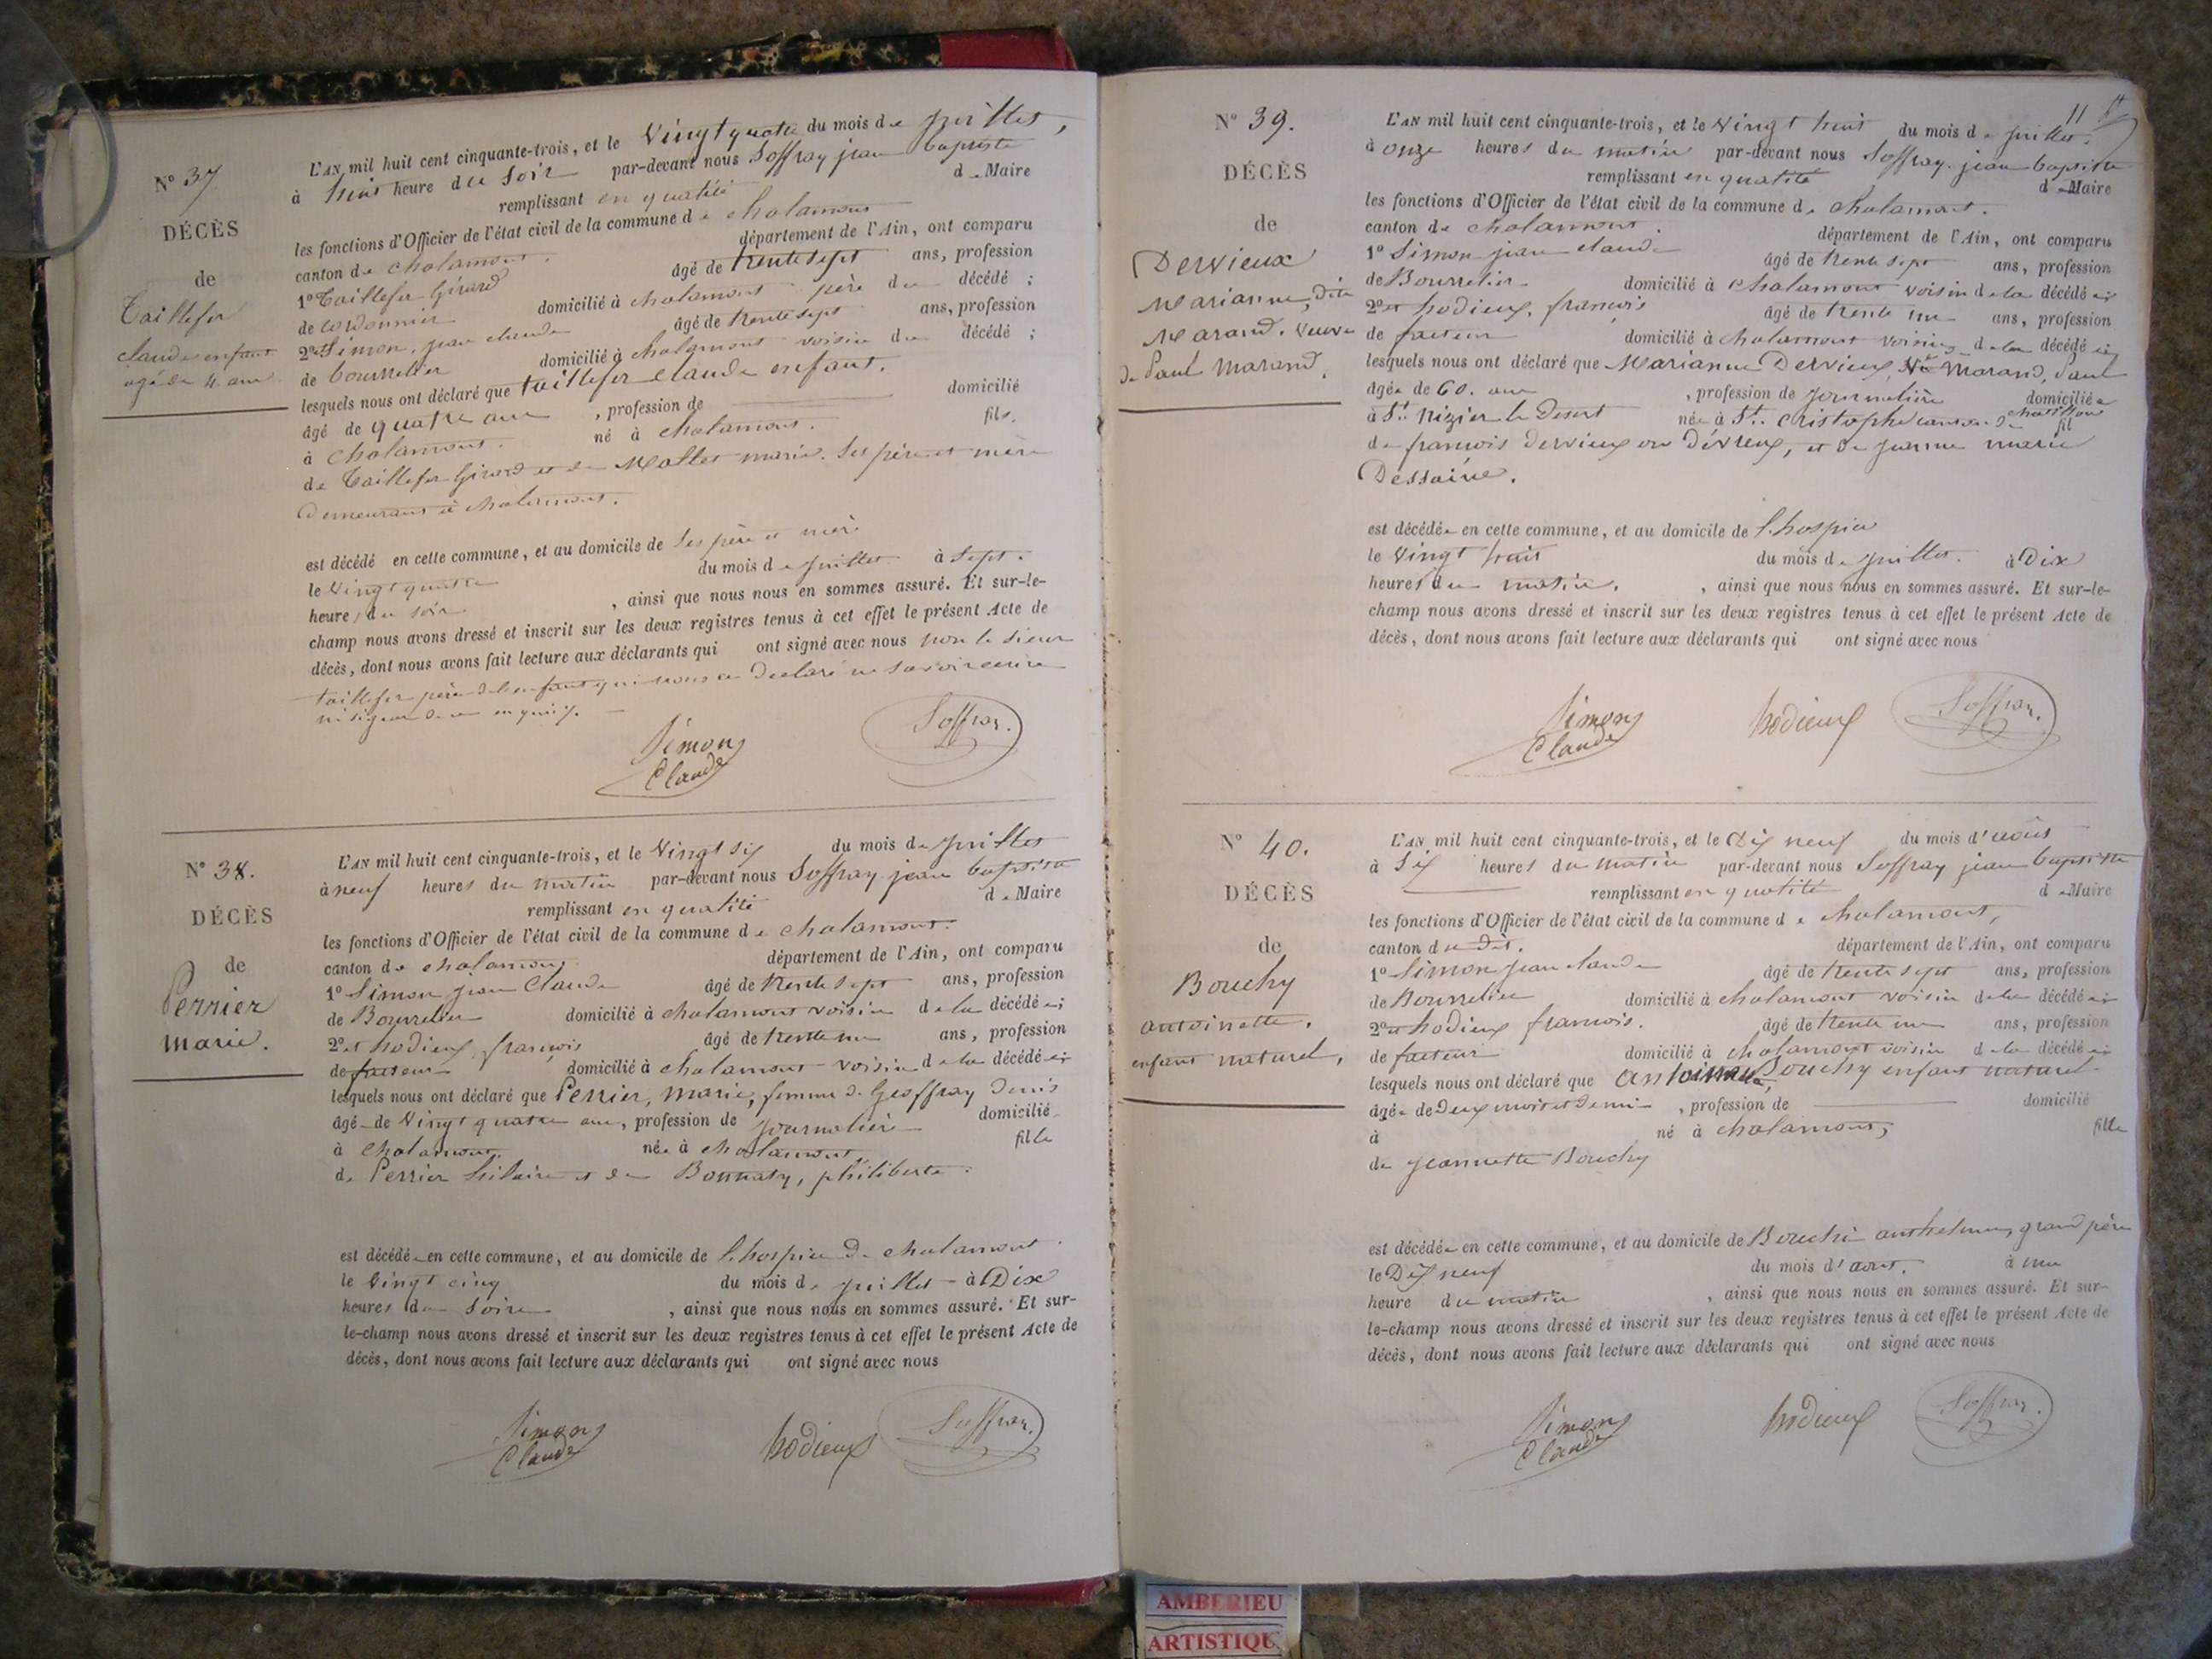 N° 37
DÉCÈS
de
Taillefer
claude enfant
agé de 4. ans
L'AN mil huit cent cinquante-trois, et le Vingt quatre du mois de juillet,
à huit heure du soir par-devant nous Soffray jean baptiste
remplissant en qualité de Maire
les fonctions d'Officier de l'état civil de la commune de chalamont
canton de chalamont. département de l'Ain, ont comparu
1° Taillefer Girard âgé de trente sept ans, profession
de cordonnier domicilié à chalamont père du décédé ;
2° et Simon, jean claude âgé de trente sept ans, profession
de bourrelier domicilié à chalamont voisin du décédé ;
lesquels nous ont déclaré que taillefer claude enfant.
âgé de quatre ans , profession de domicilié
à chalamont. né à chalamont. fils.
de Taillefer Girard et de Mallet marie. ses père et mère
demeurant à chalamont.
est décédé en cette commune, et au domicile de ses père et mère
le Vingt quatre du mois de juillet à sept.
heures du soir , ainsi que nous nous en sommes assuré. Et sur-le-
champ nous avons dressé et inscrit sur les deux registres tenus à cet effet le présent Acte de
décès, dont nous avons fait lecture aux déclarants qui ont signé avec nous non le sieur
taillefer père de l'enfant qui nous a declaré ne savoir écrire
ni signer de ce enquis.
Simon
Claude
Soffray.
N° 38.
DÉCÈS
de
Perrier
marie.
L'AN mil huit cent cinquante-trois, et le Vingt six du mois de juillet
à neuf heures du matin par-devant nous Soffray jean baptiste
remplissant en qualité de Maire
les fonctions d'Officier de l'état civil de la commune de chalamont.
canton de chalamont département de l'Ain, ont comparu
1° Simon jean Claude âgé de trente sept ans, profession
de Bourrelier domicilié à chalamont voisin de la décédée ;
2° et hodieux, françois âgé de trente un ans, profession
de facteur domicilié à chalamont voisin de la décédée ;
lesquels nous ont déclaré que Perrier, marie, femme de Geoffray Denis
âgée de Vingt quatre ans, profession de journalière domicilié
à Chalamont. née à chalamont fille
de Perrier hilaire et de Bonnaty, philiberte.
est décédée en cette commune, et au domicile de l'hospice de chalamont.
le Vingt cinq du mois de juillet à Dix
heures du soire , ainsi que nous nous en sommes assuré. Et sur-
le-champ nous avons dressé et inscrit sur les deux registres tenus à cet effet le présent Acte de
décès, dont nous avons fait lecture aux déclarants qui ont signé avec nous
Simon
Claude
hodieux
Soffray.
11
N° 39.
DÉCÈS
de
Dervieux
Marianne, dite
Marand. veuve
de Paul Marand.
L'AN mil huit cent cinquante-trois, et le Vingt huit du mois de juillet.
à onze heures du matin par-devant nous Soffray. jean baptiste
remplissant en qualité de Maire
les fonctions d'Officier de l'état civil de la commune de chalamont.
canton de chalamont. département de l'Ain, ont comparu
1° Simon jean claude âgé de trente sept ans, profession
de Bourrelier domicilié à chalamont voisin de la décédée ;
2° et hodieux, françois âgé de trente un ans, profession
de facteur domicilié à chalamont voisin de la décédée ;
lesquels nous ont déclaré que Marianne Dervieux, Ve Marand, Paul
âgée de 60. ans , profession de journalière domiciliée
à St. Nizier le Desert née à St. Cristophe canton de chatillon fil
de francois Dervieux ou Dévreux, et de jeanne marie
Dessaine.
est décédée en cette commune, et au domicile de l'hospice
le Vingt huit du mois de juillet. à Dix
heures du matin. , ainsi que nous nous en sommes assuré. Et sur-le-
champ nous avons dressé et inscrit sur les deux registres tenus à cet effet le présent Acte de
décès, dont nous avons fait lecture aux déclarants qui ont signé avec nous
Simon
Claude
hodieux
Soffray.
N° 40.
DÉCÈS
de
Bouchy
antoinette.
enfant naturel,
L'AN mil huit cent cinquante-trois, et le dix neuf du mois d'août
à Six heures du matin par-devant nous Soffray jean baptiste
remplissant en qualité de Maire
les fonctions d'Officier de l'état civil de la commune de chalamont,
canton du dit. département de l'Ain, ont comparu
1° Simon jean claude âgé de trente sept ans, profession
de Bourrelier domicilié à chalamont voisin de la décédée ;
2° et hodieux francois. âgé de trente un ans, profession
de facteur domicilié à chalamont voisin de la décédée ;
lesquels nous ont déclaré que antoinette, Bouchy enfant naturel
âgée de deux mois et demi , profession de domicilié
à né à chalamont, fille
de jeannette Bouchy
est décédée en cette commune, et au domicile de Bouchi anthelme, grand père
le Dix neuf du mois d'aout. à une
heure du matin , ainsi que nous nous en sommes assuré. Et sur-
le-champ nous avons dressé et inscrit sur les deux registres tenus à cet effet le présent Acte de
décès, dont nous avons fait lecture aux déclarants qui ont signé avec nous
Simon
Claude
hodieux
Soffray.
AMBERIEU
ARTISTIQU